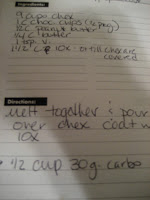 Ingredients:
9 cups chex
1/2 c peanut butter
1/4 c butter
1 tsp v.
1 1/2 cup 10x - or till chex is
covered
Directions:
melt together & pour
over chex coat w
10x
1/2 cup 30g carbo